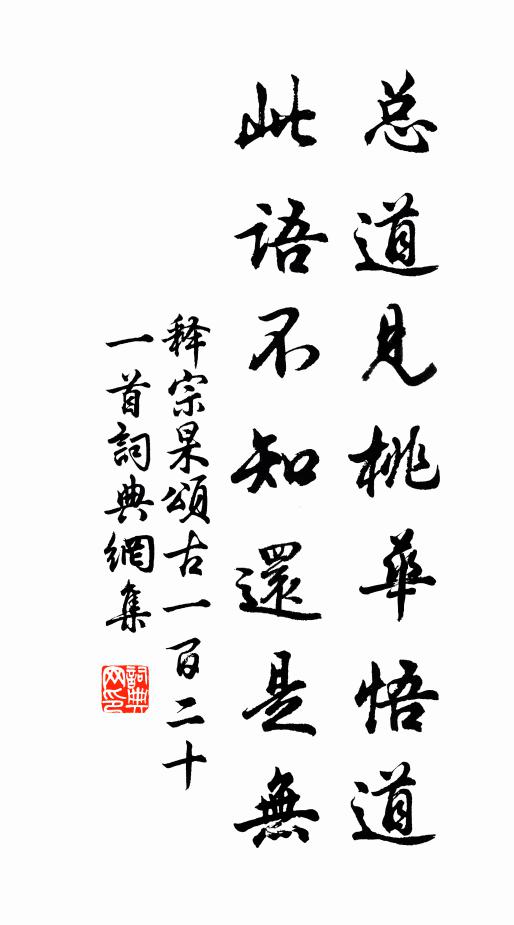 总道見桃華悟道
此語不知還是無
释宗杲頌古一百二十
一首詞典網集
詞典網印